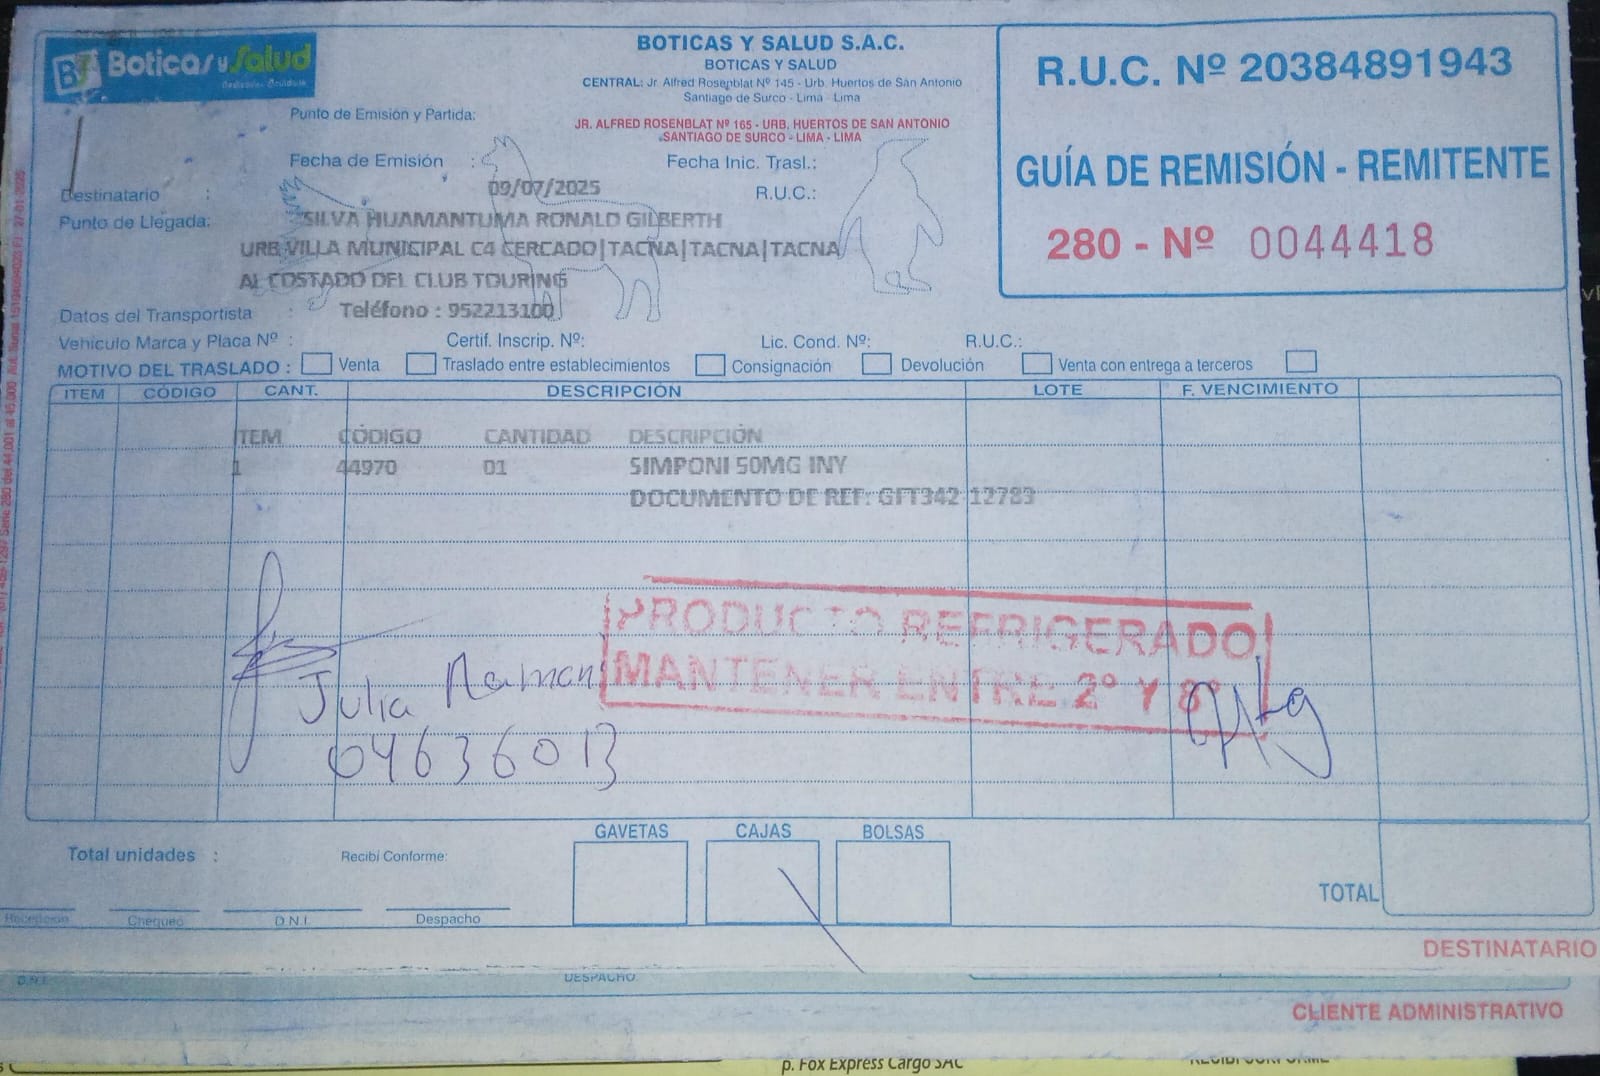 Boticas y Salud
BOTICAS Y SALUD S.A.C.
BOTICAS Y SALUD
CENTRAL: Jr. Alfred Rosenblat Nº 145 - Urb. Huertos de San Antonio
Santiago de Surco - Lima - Lima
Punto de Emisión y Partida:
JR. ALFRED ROSENBLAT Nº 165 - URB. HUERTOS DE SAN ANTONIO
SANTIAGO DE SURCO - LIMA - LIMA
R.U.C. Nº 20384891943
GUÍA DE REMISIÓN - REMITENTE
280 - Nº 0044418
Fecha de Emisión :
Fecha Inic. Trasl.:
09/07/2025
Destinatario :
R.U.C.:
Punto de Llegada:
SILVA HUAMANTUMA RONALD GILBERTH
URB VILLA MUNICIPAL C4 CERCADO|TACNA|TACNA|TACNA
AL COSTADO DEL CLUB TOURING
Datos del Transportista :
Teléfono : 952213100
Vehículo Marca y Placa Nº :
Certif. Inscrip. Nº:
Lic. Cond. Nº:
R.U.C.:
MOTIVO DEL TRASLADO : Venta Traslado entre establecimientos Consignación Devolución Venta con entrega a terceros
ITEM CÓDIGO CANT. DESCRIPCIÓN LOTE F. VENCIMIENTO
ITEM CÓDIGO CANTIDAD DESCRIPCIÓN
1 44970 01 SIMPONI 50MG INY
DOCUMENTO DE REF: GFT342 12783
PRODUCTO REFRIGERADO
MANTENER ENTRE 2º Y 8º
Julia Mamani
04636013
GAVETAS CAJAS BOLSAS
Total unidades :
Recibí Conforme:
TOTAL
Recepción Chequeo D.N.I. Despacho
DESTINATARIO
D.N.I. DESPACHO
CLIENTE ADMINISTRATIVO
p. Fox Express Cargo SAC
RECIBI CONFORME